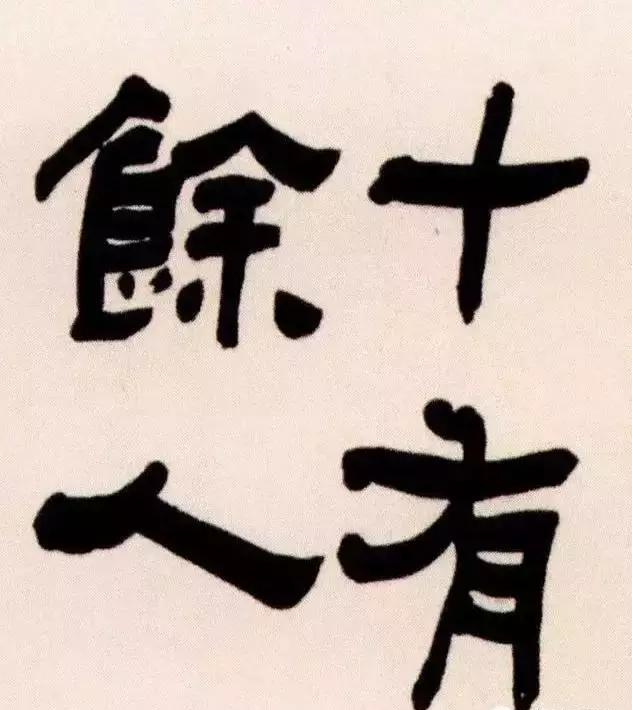 十有
餘人